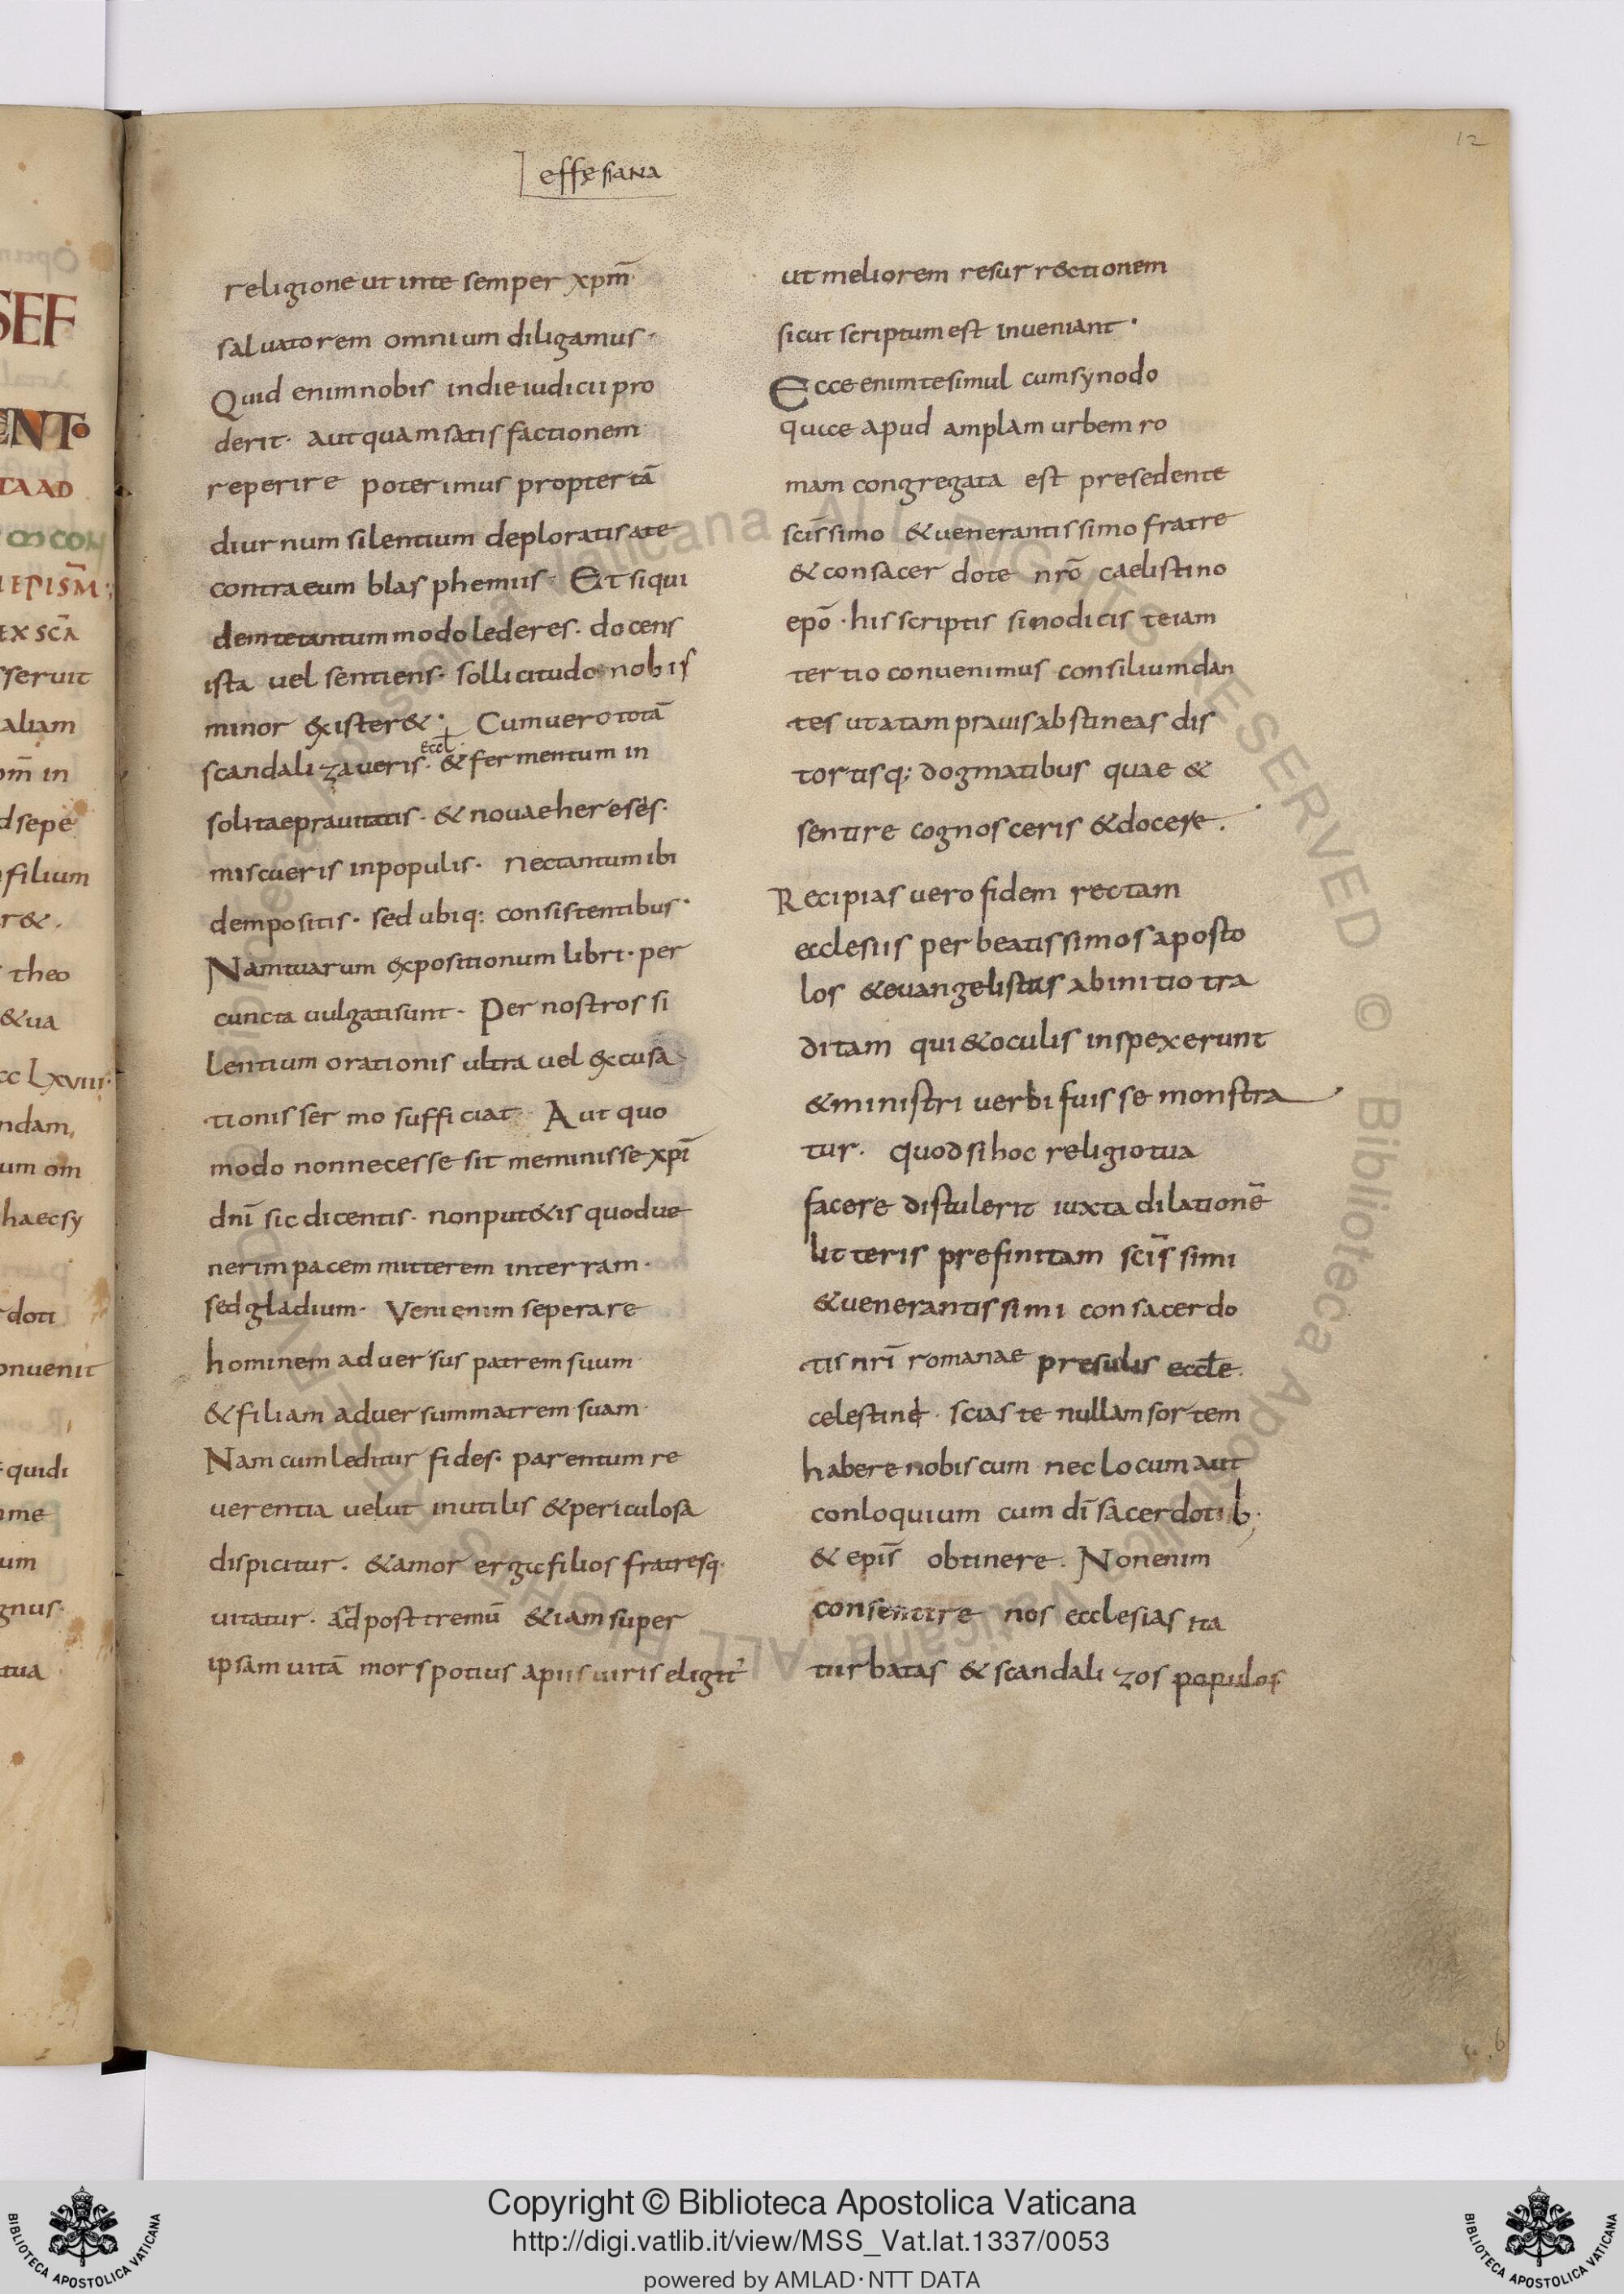 12
effesiana
religione ut in te semper xpm̄
saluatorem omnium diligamus·
Quid enim nobis in die iudicii pro
derit· aut quam satisfactionem
reperire poterimus propter tā
diurnum silentium deploratis a te
contra eum blasphemiis· Et si qui
dem te tantummodo lederes· docens
ista uel sentiens· sollicitudo nobis
minor existeret· Cum uero totā
eccl
scandalizaueris· & fermentum in
solitae prauitatis· & nouae hereses·
miscueris in populis· nec tantum ibi
dem positis· sed ubiq: consistentibus·
Nam tuarum expositionum libri· per
cuncta uulgati sunt· Per nostros si
lentium orationis ultra uel excusa
tionis sermo sufficiat· Aut quo
modo non necesse sit meminisse xpī
dnī sic dicentis· non putetis quod ue
nerim pacem mitterem in terram·
sed gladium· Veni enim seperare
hominem aduersus patrem suum
& filiam aduersum matrem suam·
Nam cum leditur fides· parentum re
uerentia uelut inutilis & periculosa
dispicitur· & amor erga filios fratresq·
uitatur· ad posttremū etiam super
ipsam uitā mors potius a piis uiris eligit᷑
ut meliorem resurrectionem
sicut scriptum est inueniant·
Ecce enim te simul cum synodo
quae apud amplam urbem ro
mam congregata est presedente
scīssimo & uenerantissimo fratre
& consacerdote nrō caelistino
epō· his scriptis sinodicis te iam
tertio conuenimus consilium dan
tes ut a tam prauis abstineas dis
tortisq; dogmatibus quae &
sentire cognosceris & docere·
Recipias uero fidem rectam
ecclesiis per beatissimos aposto
los & euangelistas ab initio tra
ditam qui & oculis inspexerunt
& ministri uerbi fuisse monstra
tur· quod si hoc religio tua
facere distulerit iuxta dilationē
litteris prefinitam scīssimi
& uenerantissimi consacerdo
tis nrī romanae presulis eccłe·
celestine· scias te nullam sortem
habere nobiscum nec locum aut
conloquium cum dī sacerdotib;
& epīs obtinere· Non enim
consentire nos ecclesias ita
turbatas & scandalizos populos
SEF
ENT
TA AD
EX SCĀ
sseruit
aliam
om̄ in
dsepe
filium
r&·
theo
& ua
cc Lxviii·
ndam,
um om
haec sy
doti
onuenit
quidi
me
um
gnus·
tua
© Biblioteca Apostolica Vaticana ALL RIGHTS RESERVED © Biblioteca Apostolica Vaticana ALL RIGHTS RESERVED
Copyright © Biblioteca Apostolica Vaticana
http://digi.vatlib.it/view/MSS_Vat.lat.1337/0053
powered by AMLAD·NTT DATA
BIBLIOTECA APOSTOLICA VATICANA
BIBLIOTECA APOSTOLICA VATICANA